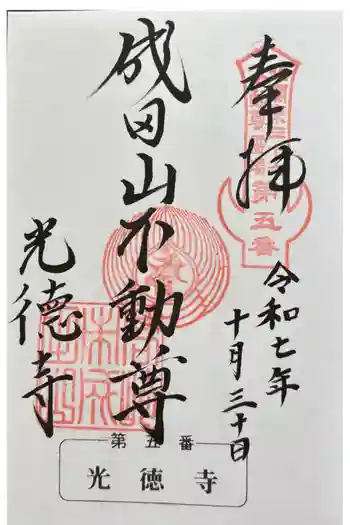 奉拝
第五番
令和七年
十月三十日
成田山不動尊
光徳寺
第五番
光徳寺